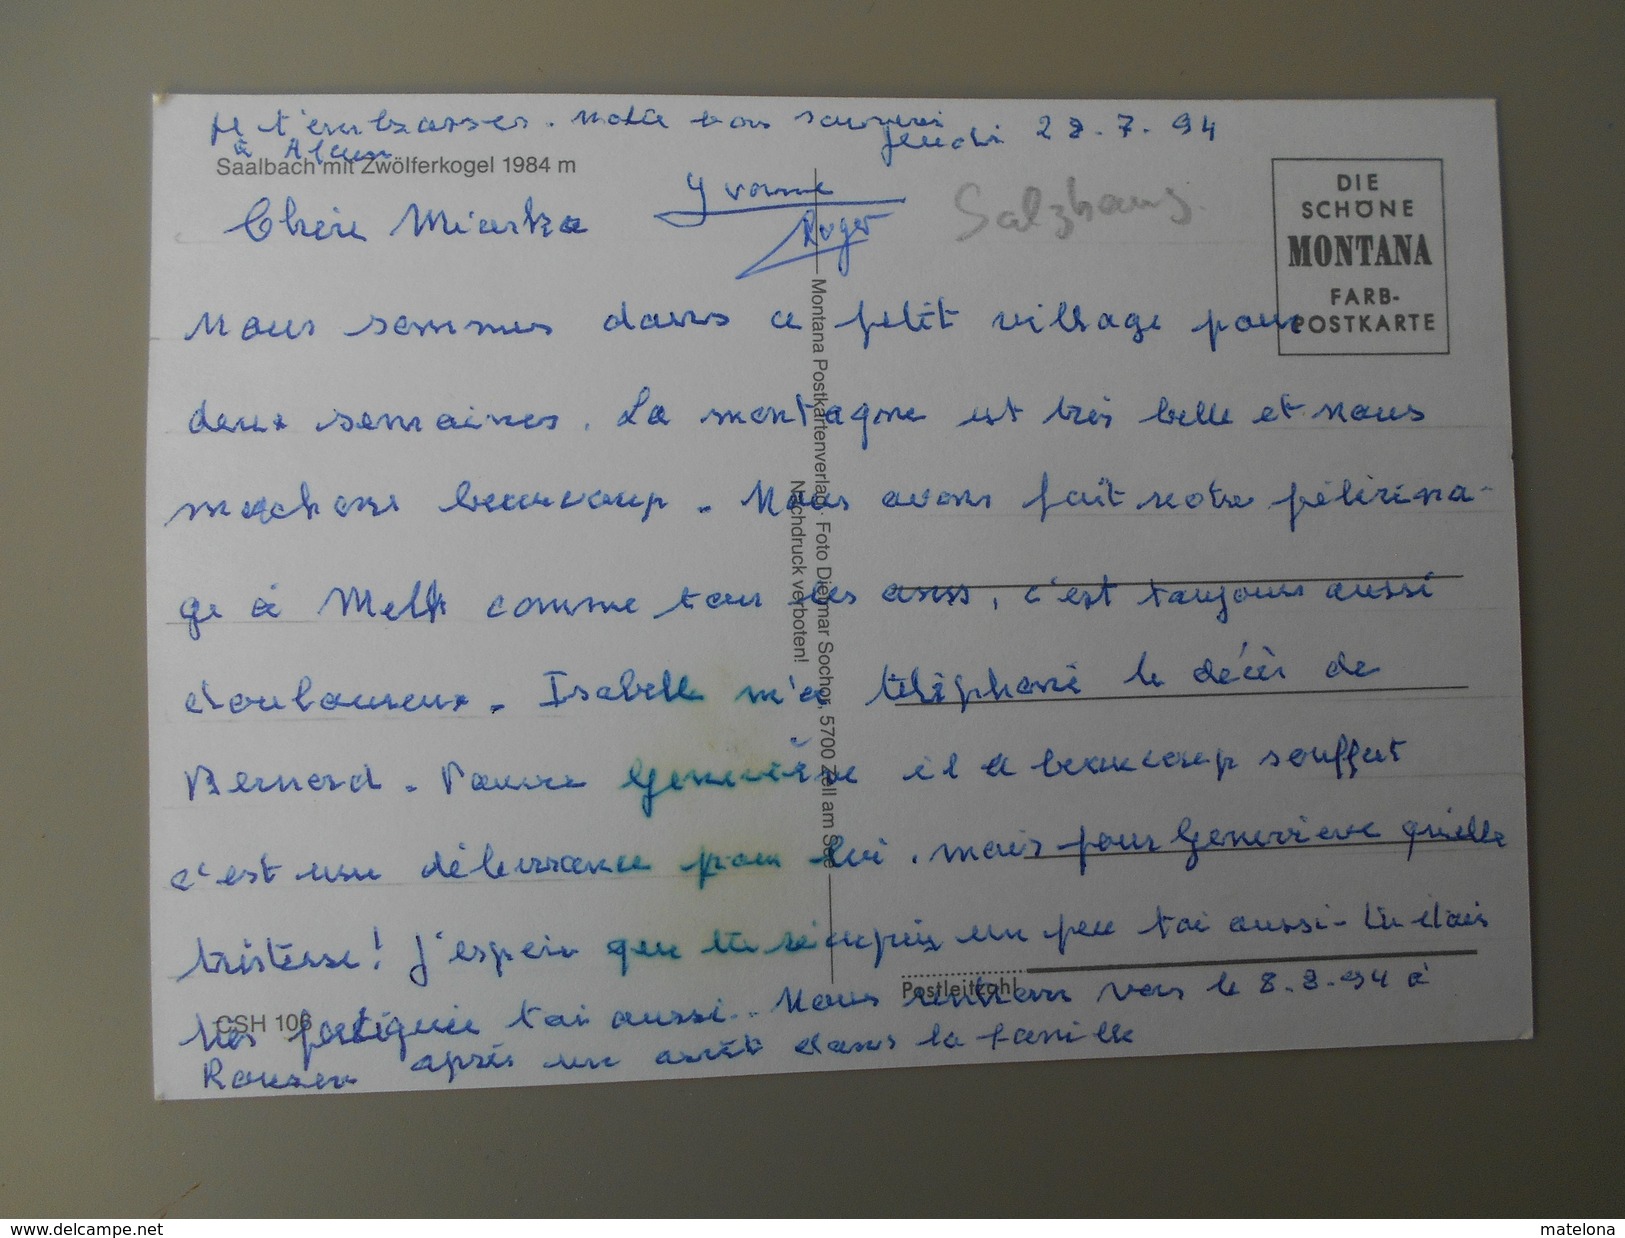 Je t'embrasse. notre bon souvenir
à Alain
jeudi 28.7.94
Saalbach mit Zwölferkogel 1984 m
Yvonne
Roger
Salzbourg
DIE
SCHÖNE
MONTANA
FARB-
POSTKARTE
Chère
Nous sommes dans ce petit village pour
deux semaines. La montagne est très belle et nous
marchons beaucoup. Nous avons fait notre pélérina-
ge à Melk comme tous les ans, c'est toujours aussi
douloureux. Isabelle m'a téléphoné le décès de
Bernard. Pauvre Geneviève il a beaucoup souffert
c'est une délivrance pour lui. mais pour Geneviève quelle
tristesse! J'espère que tu récupères un peu toi aussi. Tu étais
très fatiguée toi aussi.. Nous rentrons vers le 8.8.94 à
après un arrêt dans la famille
Montana Postkartenverlag · Foto Dietmar Sochor, 5700 Zell am See
Nachdruck verboten!
Postleitzahl
CSH 106
www.delcampe.net
matelona